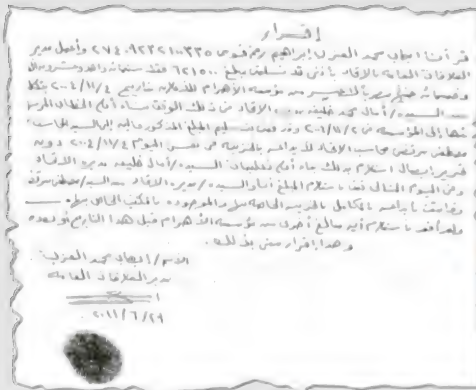 إقرار
أقر أنا / إيهاب محمد العزب إبراهيم رقم قومى ٢٧٤٠٩٢٣٢١٠٠٣٣٥ وأعمل مدير
العلاقات العامة بالاتحاد بأننى قد تسلمت مبلغ ٦٢١٥٠٠ فقط ستمائة واحد وعشرون ألف
وخمسمائة جنيه من مؤسسة الأهرام للإعلان بتاريخ ٢٠٠٤/١١/٤
السيدة / آمال محمد خليفة الاتحاد فى ذلك الوقت بناء على الخطاب المرسل
منها إلى المؤسسة فى ٢٠٠٤/١١/٢ وقد قمت بتسليم المبلغ المذكور عاليه إلى السيد المحاسب
مصطفى محاسب الاتحاد بالخزينة فى نفس اليوم ٢٠٠٤/١١/٤ دون
تحرير إيصال استلام بذلك بناء على تعليمات السيدة / آمال خليفة مديرة الاتحاد
وفى اليوم التالى قمنا باستلام المبلغ أنا والسيدة / مديرة الاتحاد من السيد / مصطفى
بالكامل بالخزينة الخاصة الموجودة بالمكتب الخاص
ولم أقم باستلام أية مبالغ أخرى من مؤسسة الأهرام قبل هذا التاريخ أو بعده
وهذا إقرار منى بذلك
الاسم / إيهاب محمد العزب
مدير العلاقات العامة
٢٠١١/٦/٢٩